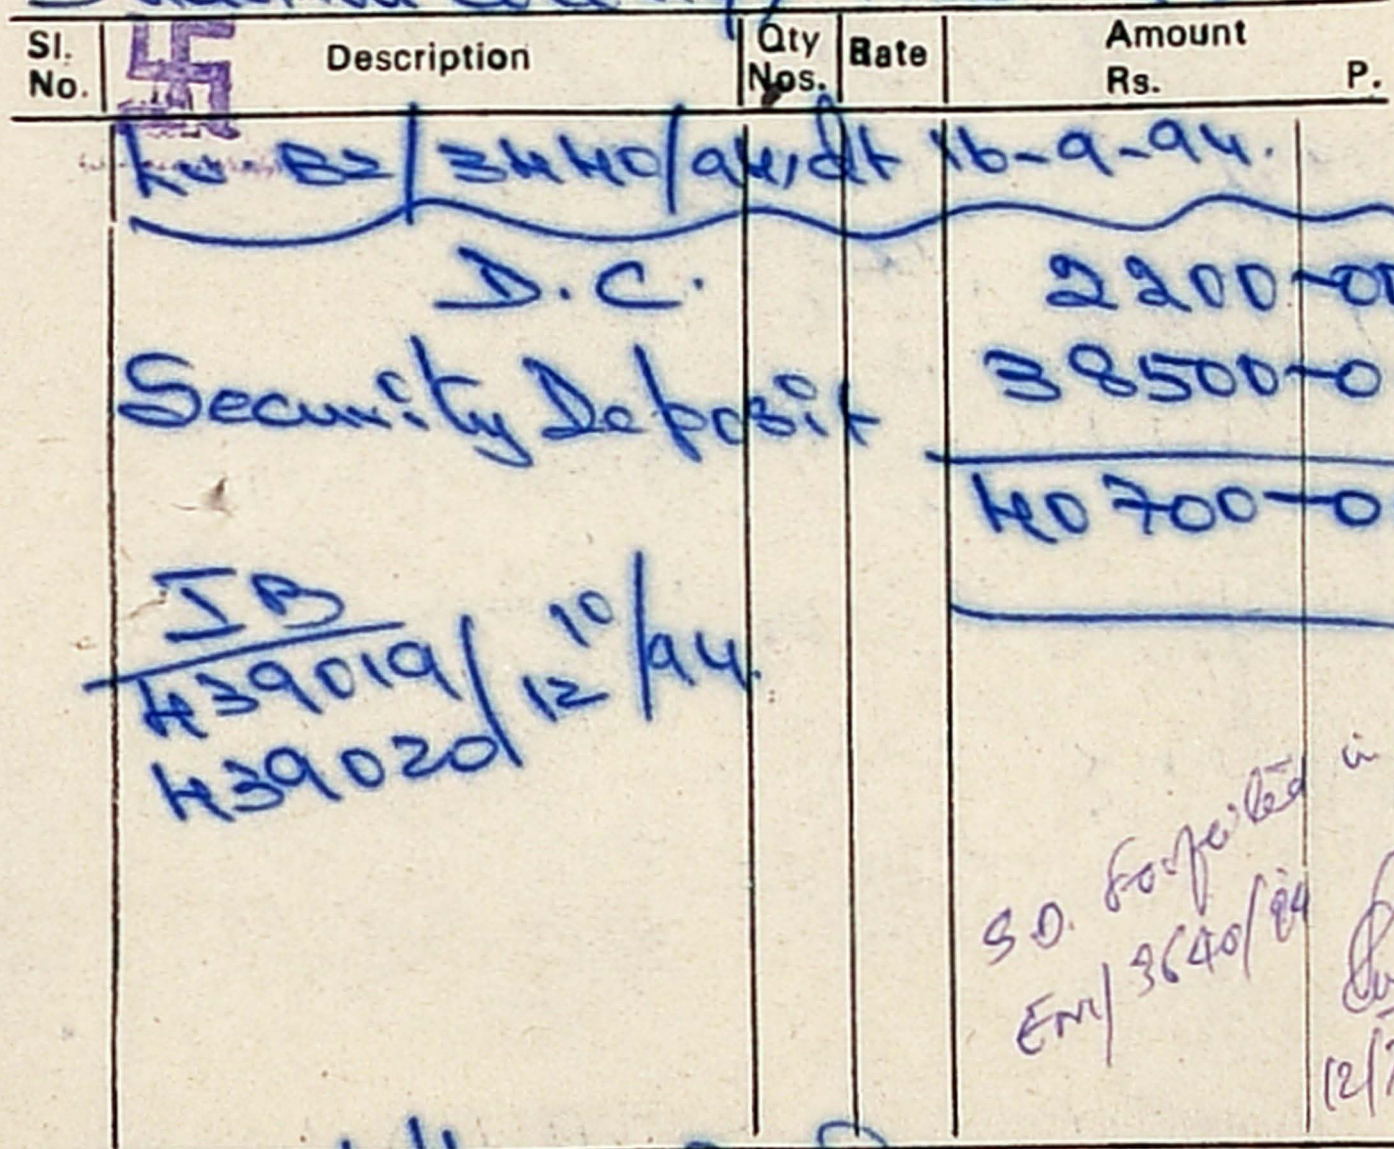 Sl. No. Description Qty Nos. Rate Amount Rs. P.
B2/3440/94, dt 16-9-94.
D.C. 2200-00
Security Deposit 38500-0
40700-0
IB
439019/ 12/10/94.
439020
S.D. Forfeited in
3640/94
12/